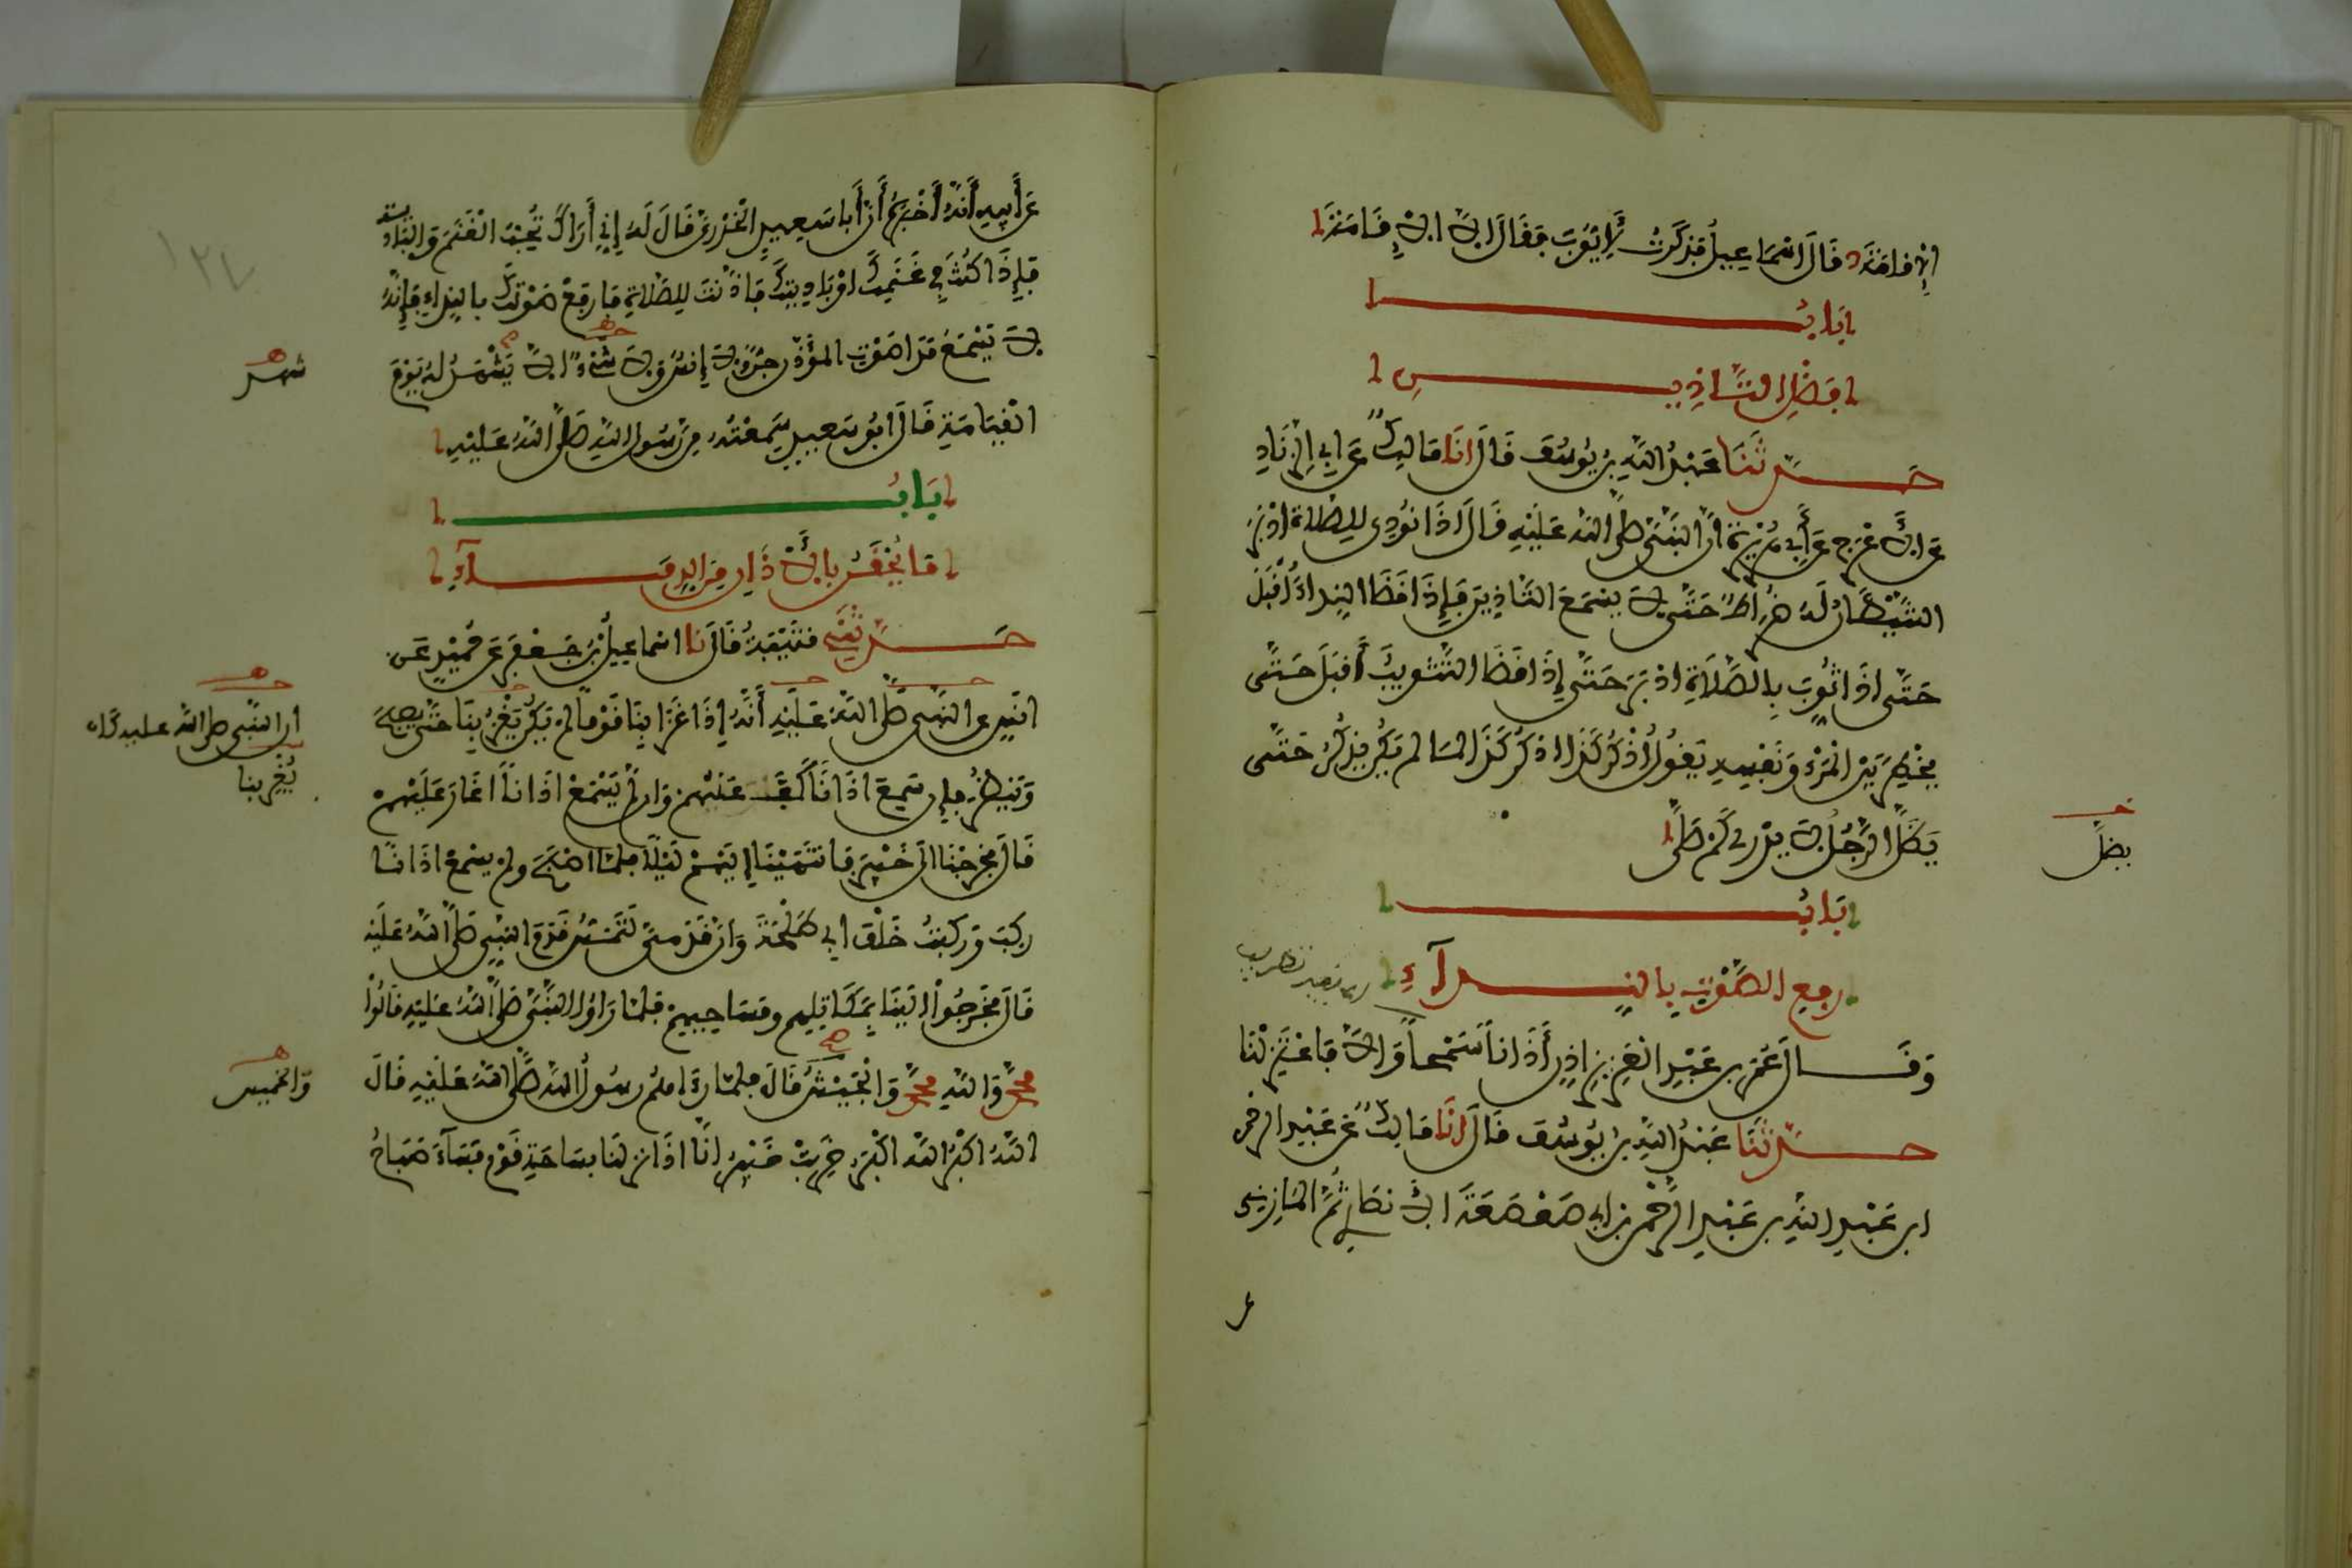 الإِقامَةَ قَالَ اسْمَاعِيلُ فَذَكَرْتُ لِأَيُّوبَ فَقَالَ الَّا الْإِقَامَةَ
بَابُ
فَضْلِ التَّأذِينِ
حَدَّثَنَا عَبْدُ اللَّهِ بنُ يُوسُفَ قَالَ انَا مَالِكٌ عَن ابِي الزِّنَادِ
عَن الأَعْرَجِ عَن أَبِي هُرَيْرَةَ أنَّ النَّبِيَّ صَلَّى اللَّهُ عَلَيْهِ قَالَ اذَا نُودِيَ لِلصَّلَاةِ ادْبَرَ
الشَّيْطَانُ لَهُ ضُرَاطٌ حَتَّى لَا يَسْمَعَ التَّاذِينَ فَإِذَا قَضَا النِّدَاءَ أَقْبَلَ
حَتَّى اذَا ثُوِّبَ بِالصَّلَاةِ ادْبَرَ حَتَّى إِذَا قَضَا التَّثْوِيبَ أَقبَلَ حَتَّى
يَخْطِرَ بَيْنَ الْمَرْءِ وَنَفْسِهِ يَقُولُ اُذْكُرْ كَذَا اذكُرْ كَذَا لِمَا لم يَكُن يَذكُرُ حَتَّى
يَظَلَّ الرَّجُلُ لَا يَدْرِي كَمْ صَلَّى
يضلّ
بَابُ
رفعِ الصَّوْتِ بِالنِّدَآءِ
وَقَالَ عُمَرُ بن عَبْدِ الْعَزِيزِ اذِّن أَذَاناً سَمْحاً وَالَّا فَاعْتَزِلْنَا
حَدَّثَنَا عَبْدُ اللَّهِ بنُ يُوسُفَ قَالَ انَا مَالِكٌ عَن عَبْدِ الرَّحْمن
ابن عَبْدِ اللَّهِ بن عَبْدِ الرَّحْمنِ بن ابِي صَعْصَعَةَ الانصَارِي ثُمَّ المَازِنِي
عَن أَبِيهِ أَنَّهُ أَخْبَرَهُ أَنَّ أَبَا سَعِيدٍ الْخُدْرِيَّ قَالَ لَهُ إِنِّي أَرَاكَ تُحِبُّ الْغَنَمَ وَالبَادِيَةَ
فَإِذَا كُنْتَ فِي غَنَمِكَ اوْ بَادِيَتِكَ فَاذَّنْتَ لِلصَّلَاةِ فَارفَعْ صَوْتَكَ بالنِّدَاءِ فَإِنَّهُ
لَا يَسْمَعُ مَدَا صَوْتِ الْمُؤَذِّنِ جِنٌّ وَلَا إِنسٌ وَلَا شَيْءٌ الَّا يَشْهَدُ لَهُ يَوْمَ
شهد
الْقِيَامَةِ قَالَ ابُو سَعِيدٍ سَمِعْتُهُ مِن رَسُولِ اللَّهِ صَلَّى اللَّهُ عَلَيْهِ
بَابُ
مَا يُحْقَنُ بِالْأَذَانِ مِنَ الدِّمَآءِ
حَدَّثَنِي قُتَيْبَةُ قَالَ نا اسْمَاعِيلُ بْنُ جَعْفَرٍ عَن حُمَيْدٍ عَن
انَسٍ عن النَّبِيِّ صَلَّى اللَّهُ عَلَيْهِ أَنَّهُ إِذَا غَزَا بِنَا قَوْماً لَم يَكُن يَغْزُ بِنَا حَتَّى يصبحَ
أن النَّبي صلى الله عليه كان
يُغِرْ بنا
وَيَنظُرَ فإن سَمِعَ اذَاناً كَفَّ عَنْهُمْ وَان لَمْ يَسْمَعْ اذَاناً اغَارَ عَلَيْهِمْ
قَالَ فخَرَجْنَا الَى خَيْبَرَ فَانتَهَيْنَا إِلَيْهِمْ لَيْلًا فلمّا اصْبَحَ ولم يسْمَعْ اذَانًا
رَكِبَ وَرَكِبْتُ خَلْفَ ابِي طَلْحَةَ وَانّ قَدَمِي لَتَمَسُّ قَدَمَ النَّبِيِّ صَلَّى اللَّهُ عَلَيْهِ
قَالَ فخَرَجُوا الَيْنَا بِمَكَاتِلِهِم وَمَسَاحِيهِمْ فَلَمَّا رَأَوُا النَّبِيَّ صَلَّى اللَّهُ عَلَيْهِ قَالُوا
مُحَمَّدٌ وَاللَّهِ مُحَمَّدٌ وَالْجَيْشُ قَالَ فلمّا رَءَاهُم رَسُولُ اللَّهِ صَلَّى اللَّهُ عَلَيْهِ قَالَ
وَالخميس
اللَّهُ اكْبَرُ اللَّهُ اكْبَرُ خَرِبَتْ خَيْبَرُ انَّا اذَا نزلنَا بسَاحَةِ قَوْمٍ فَسَآءَ صَبَاحُ